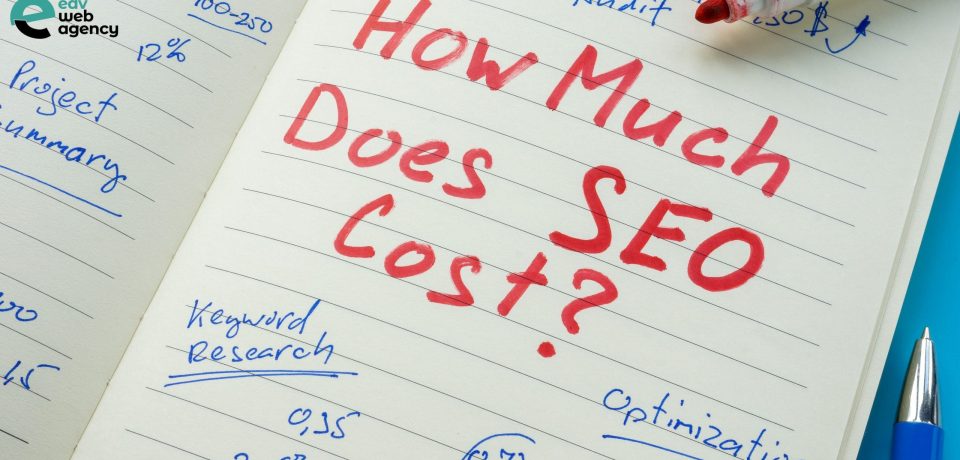 edv
web
agency
100-250
12%
Project
Summary
1,5
Audit
$
How Much
Does SEO
Cost?
Keyword
Research
0,35
Optimizatio